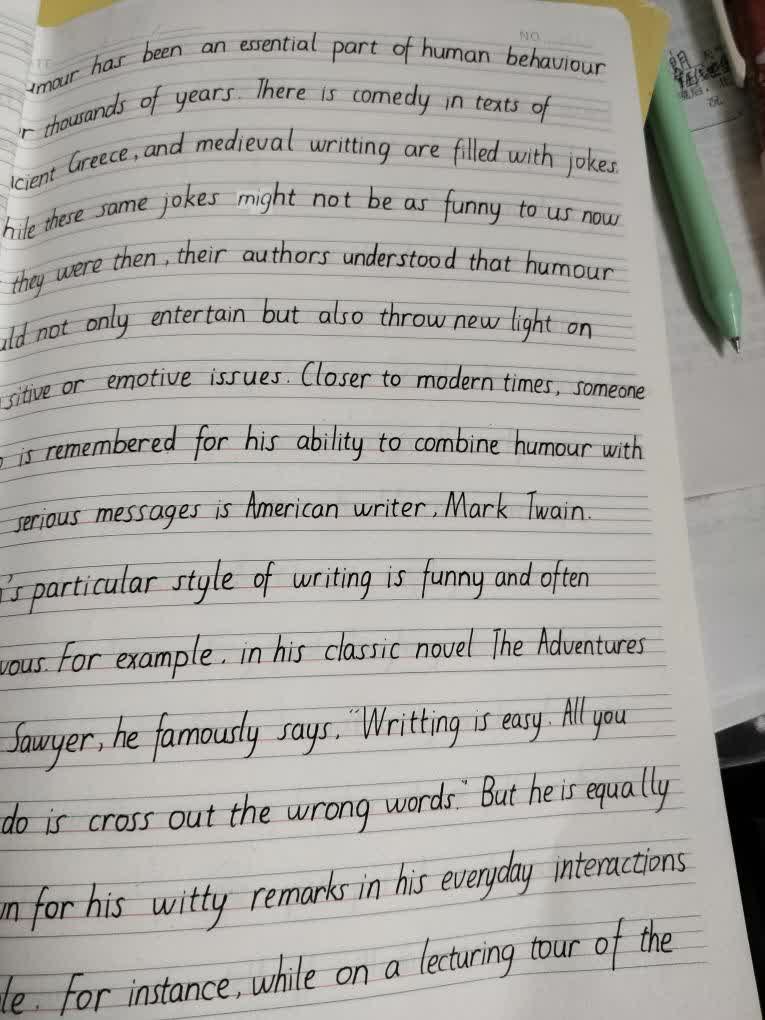 NO
umour has been an essential part of human behaviour
r thousands of years. There is comedy in texts of
cient Greece, and medieval writting are filled with jokes.
hile these same jokes might not be as funny to us now
they were then, their authors understood that humour
uld not only entertain but also throw new light on
sitive or emotive issues. Closer to modern times, someone
o is remembered for his ability to combine humour with
serious messages is American writer, Mark Twain.
's particular style of writing is funny and often
vous. For example, in his classic novel The Adventures
Sawyer, he famously says, "Writting is easy. All you
do is cross out the wrong words." But he is equally
n for his witty remarks in his everyday interactions
le. For instance, while on a lecturing tour of the